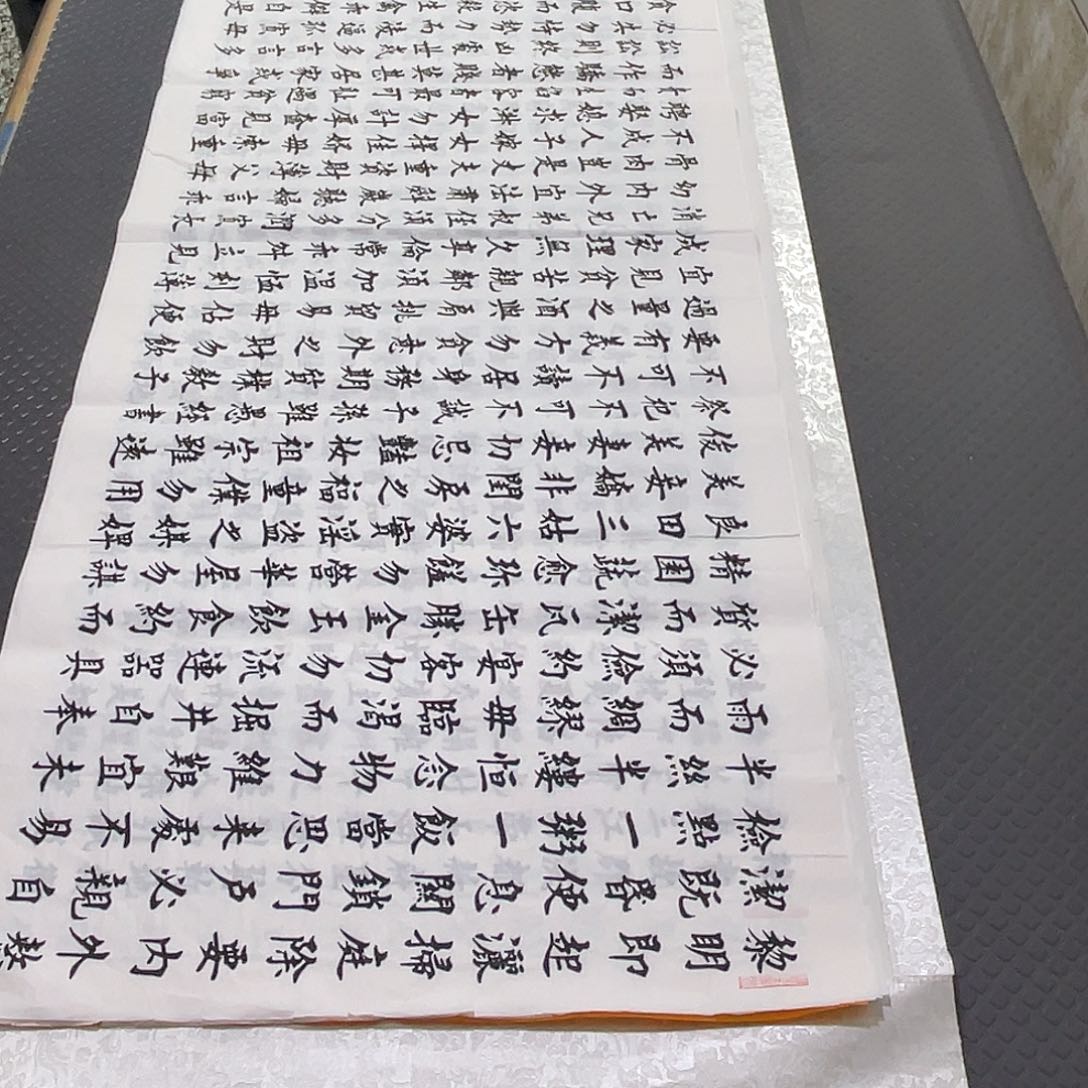 黎明即起灑掃庭除要內外整
潔既昏便息關鎖門戶必親自
檢點一粥一飯當思來處不易
半絲半縷恒念物力維艱宜未
雨而綢繆毋臨渴而掘井自奉
必須儉約宴客切勿流連器具
質而潔瓦缶勝金玉飲食約而
精園蔬愈珍饈勿營華屋勿謀
良田三姑六婆實淫盜之媒婢
美妾嬌非閨房之福童僕勿用
俊美妻妾切忌豔妝祖宗雖遠
祭祀不可不誠子孫雖愚經書
不可不讀居身務期質樸教子
要有義方勿貪意外之財勿飲
過量之酒與肩挑貿易毋佔便
宜見貧苦親鄰須加溫恤刻薄
成家理無久享倫常乖舛立見
消亡兄弟叔侄須分多潤寡長
幼內外宜法肅辭嚴聽婦言乖
骨肉豈是丈夫重資財薄父母
不成人子嫁女擇佳婿毋索重
聘娶媳求淑女勿計厚奩見富